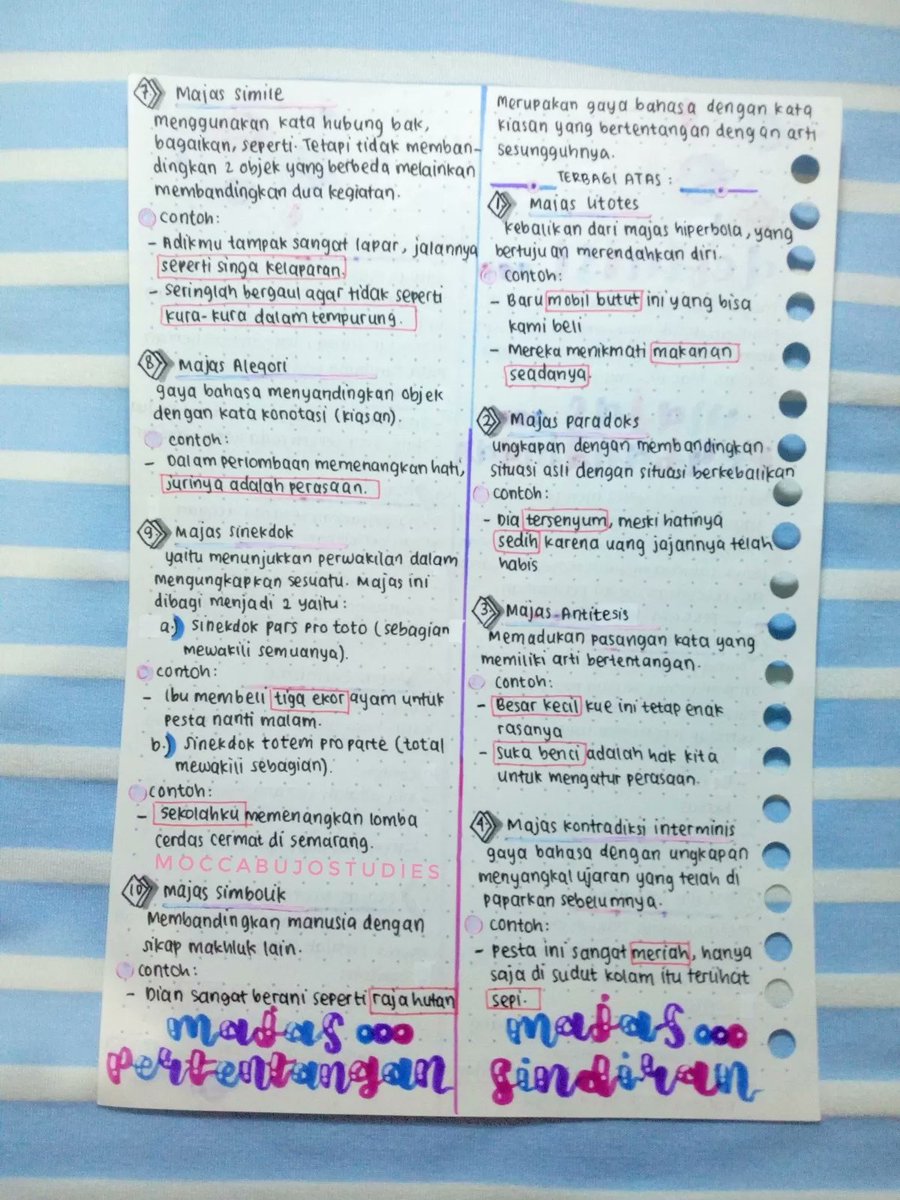 7 Majas Simile
menggunakan kata hubung bak,
bagaikan, seperti. Tetapi tidak memban-
dingkan 2 objek yang berbeda melainkan
membandingkan dua kegiatan.
contoh:
- Adikmu tampak sangat lapar, jalannya
seperti singa kelaparan.
- Seringlah bergaul agar tidak seperti
kura-kura dalam tempurung.
8 Majas Alegori
gaya bahasa menyandingkan objek
dengan kata konotasi (kiasan).
contoh:
- Dalam perlombaan memenangkan hati,
jurinya adalah perasaan.
9 Majas Sinekdok
yaitu menunjukkan perwakilan dalam
mengungkapkan sesuatu. Majas ini
dibagi menjadi 2 yaitu:
a.) Sinekdok pars pro toto (sebagian
mewakili semuanya).
contoh:
- Ibu membeli tiga ekor ayam untuk
pesta nanti malam.
b.) Sinekdok totem pro parte (total
mewakili sebagian).
contoh:
- Sekolahku memenangkan lomba
cerdas cermat di Semarang.
MOCCABUJOSTUDIES
10 Majas Simbolik
Membandingkan manusia dengan
sikap makhluk lain.
contoh:
- Dian sangat berani seperti raja hutan
majas
pertentangan
Merupakan gaya bahasa dengan kata
kiasan yang bertentangan dengan arti
sesungguhnya.
TERBAGI ATAS:
1 Majas Litotes
Kebalikan dari majas hiperbola, yang
bertujuan merendahkan diri.
contoh:
- Baru mobil butut ini yang bisa
kami beli
- Mereka menikmati makanan
seadanya
2 Majas paradoks
ungkapan dengan membandingkan
situasi asli dengan situasi berkebalikan
contoh:
- Dia tersenyum, meski hatinya
sedih karena uang jajannya telah
habis
3 Majas Antitesis
Memadukan pasangan kata yang
memiliki arti bertentangan.
contoh:
- Besar kecil kue ini tetap enak
rasanya
- suka benci adalah hak kita
untuk mengatur perasaan.
4 Majas kontradiksi interminis
gaya bahasa dengan ungkapan
menyangkal ujaran yang telah di
paparkan sebelumnya.
contoh:
- Pesta ini sangat meriah, hanya
saja di sudut kolam itu terlihat
sepi.
majas
sindiran